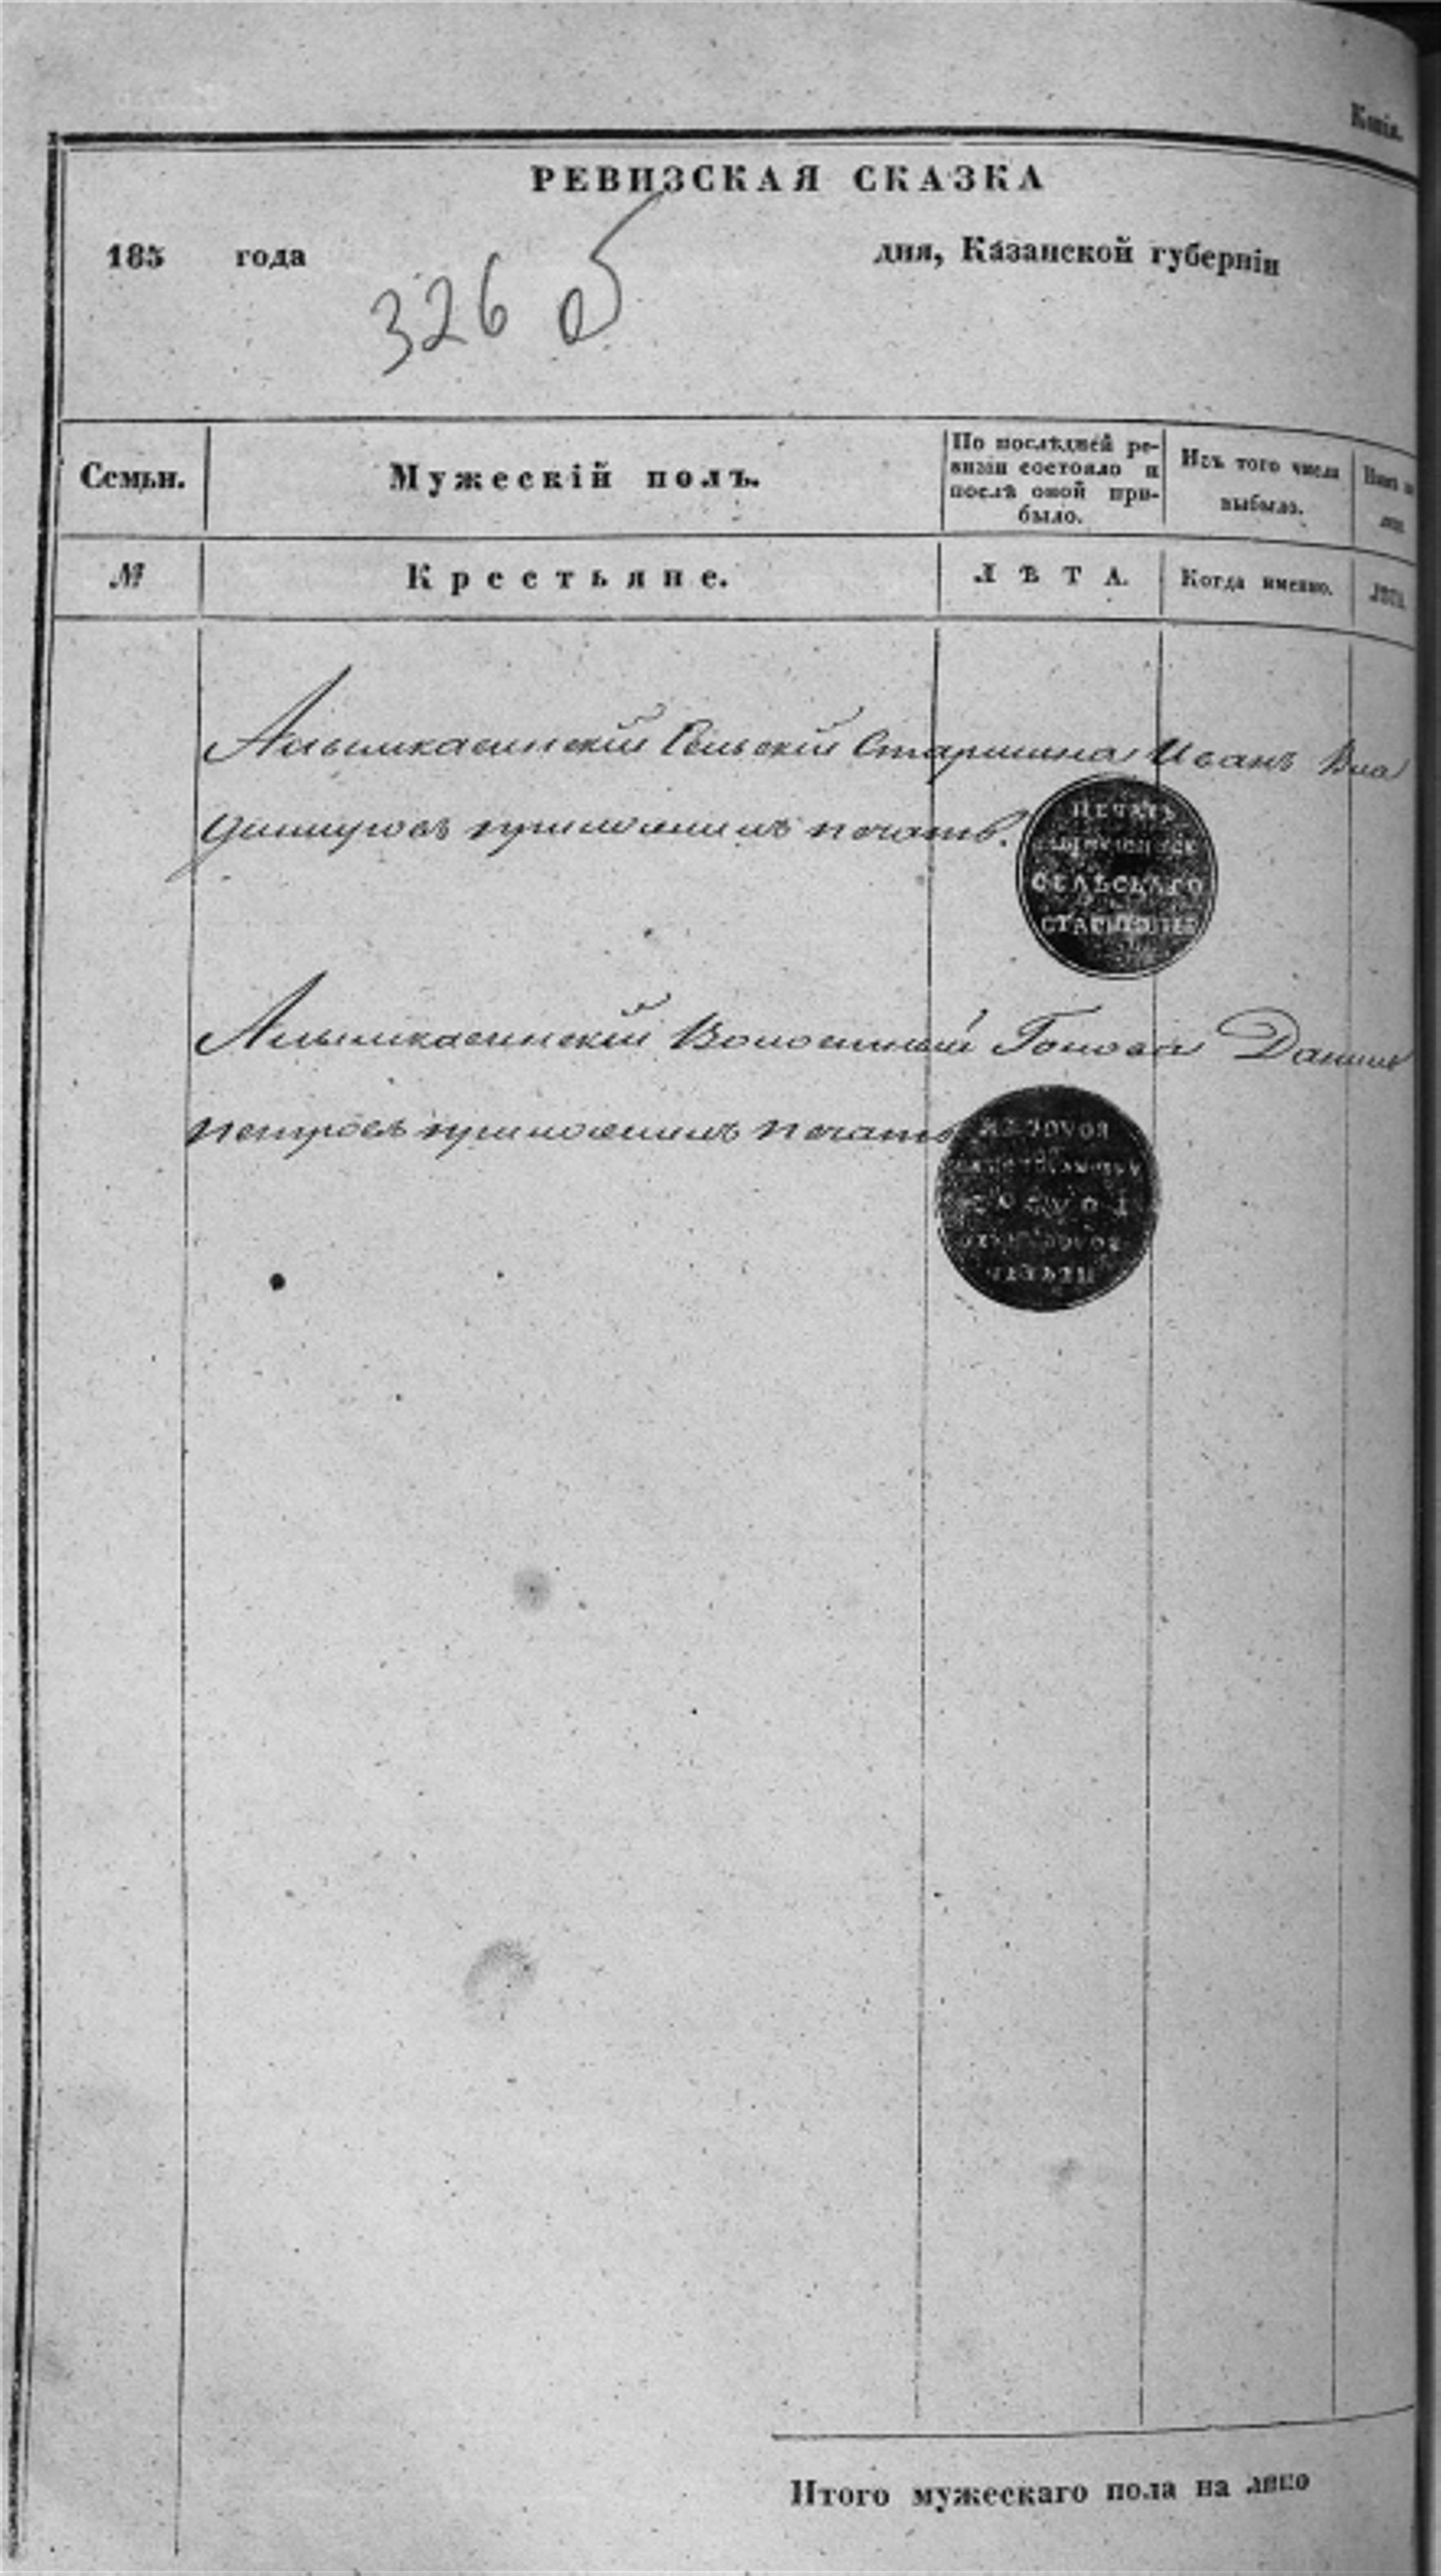 Копія.
РЕВИЗСКАЯ СКАЗКА
185 года дня, Казанской губерніи
326 об
Семьи. Мужескій полъ. По послѣдней ре- Изъ того числа
визіи состояло и выбыло.
послѣ оной при-
было.
№ Крестьяне. ЛѢТА. Когда именно. ЛѢТА.
Алымкасинскій Сельскій Старшина Иванъ Вла
димировъ приложилъ печать.
ПЕЧАТЬ
СЕЛЬСКАГО
СТАРШИНЫ
Алымкасинскій Волостный Голова Данилъ
петровъ приложилъ печать
Итого мужескаго пола на лицо